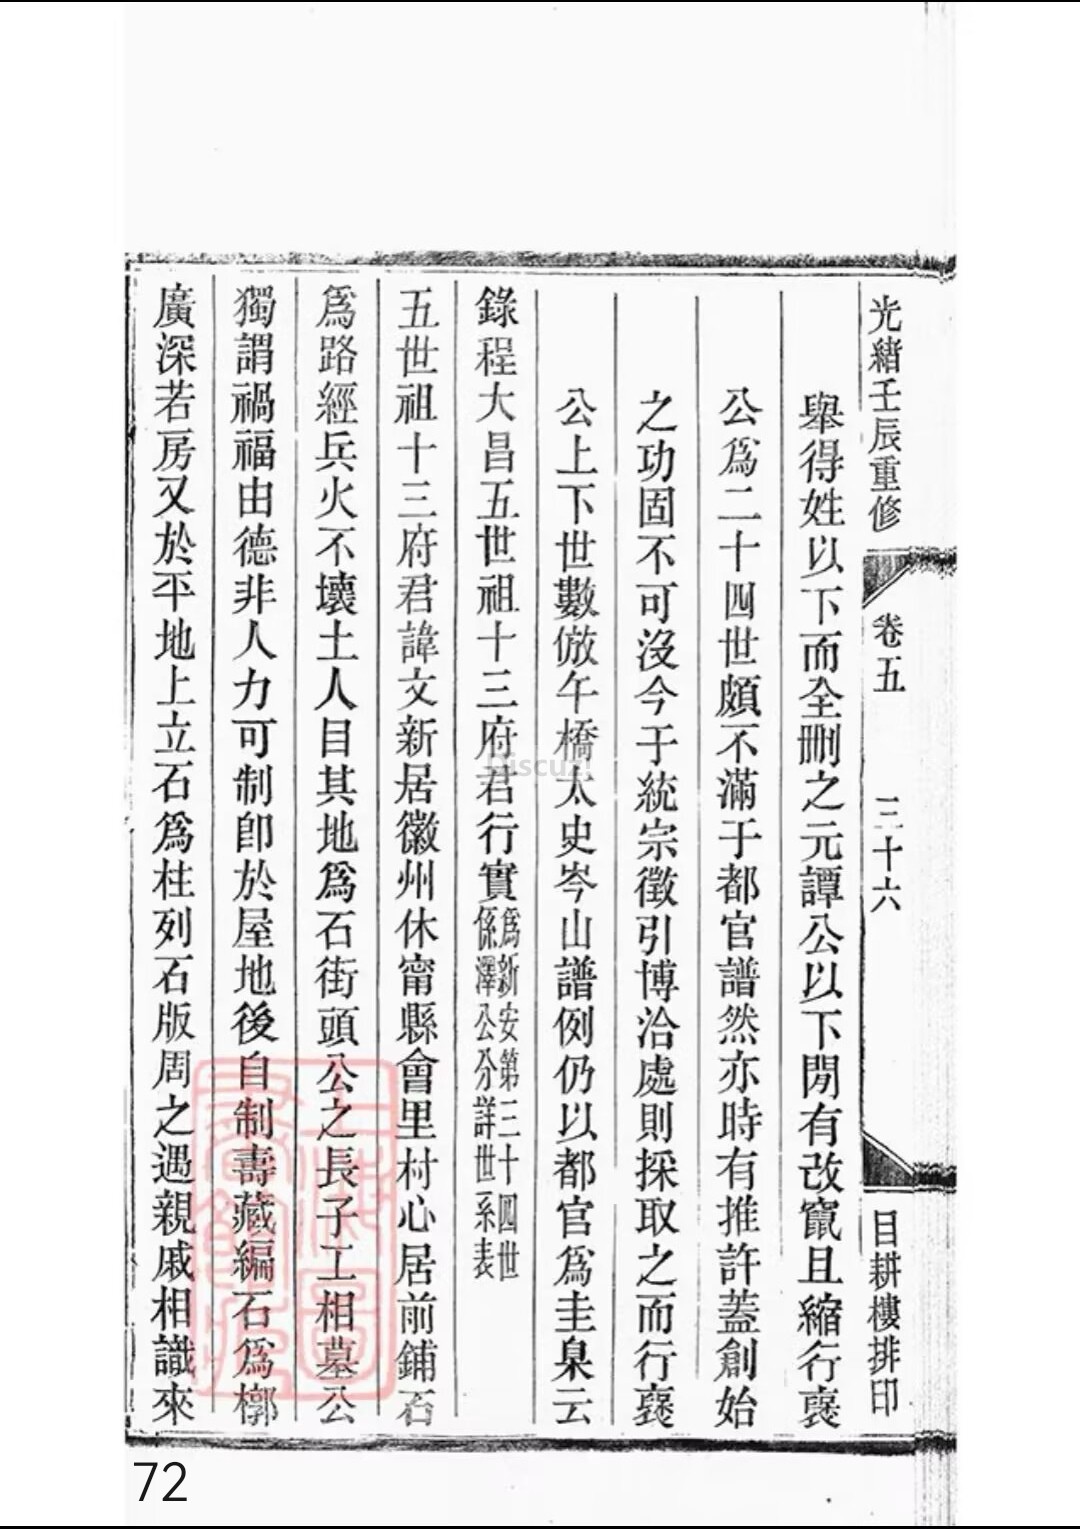 光緒壬辰重修 卷五 三十六 目耕樓排印
舉得姓以下而全刪之元譚公以下閒有改竄且縮行襃
公爲二十四世頗不滿于都官譜然亦時有推許蓋創始
之功固不可沒今于統宗徵引博洽處則採取之而行襃
公上下世數倣午橋太史岑山譜例仍以都官爲圭臬云
錄程大昌五世祖十三府君行實爲新安第三十四世
係澤公分詳世系表
五世祖十三府君諱文新居徽州休甯縣會里村心居前鋪石
爲路經兵火不壞土人目其地爲石街頭公之長子工相墓公
獨謂禍福由德非人力可制卽於屋地後自制壽藏編石爲槨
廣深若房又於平地上立石爲柱列石版周之遇親戚相識來
Discuz!
72